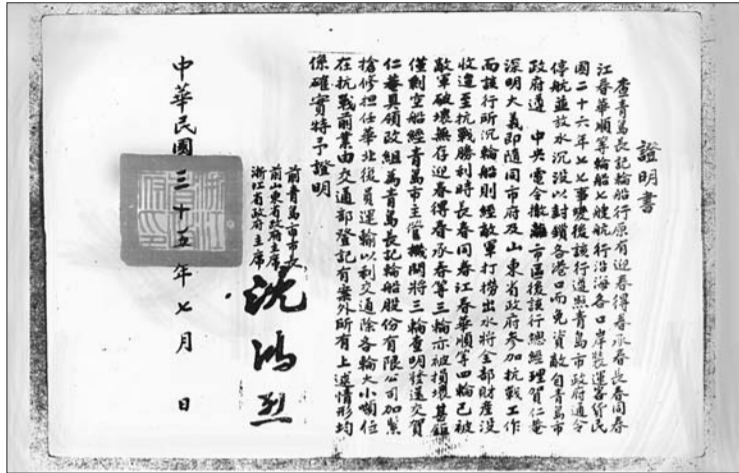 證明書
查青島長記輪船行原有迎春得春承春長春同春
江春華順等輪船七艘航行沿海各口岸裝運客貨民
國二十六年七七事變後該行遵照青島市政府通令
停航並放水沉沒以封鎖各港口而免資敵自青島市
政府遵 中央電令撤離市區後該行總經理賀仁菴
深明大義即隨同市府及山東省政府參加抗戰工作
而該行所沉輪船則經敵軍打撈出水將全部財產沒
收迨至抗戰勝利時長春同春江春華順等四輪已被
敵軍破壞無存迎春得春承春等三輪亦被損壞甚鉅
僅剩空船經青島市主管機關將三輪查明發還交賀
仁菴具領改組為青島長記輪船股份有限公司加緊
搶修担任華北後員運輸以利交通除各輪大小噸位
在抗戰前業由交通部登記有案外所有上述情形均
係確實特予證明
前青島市市長
前山東省政府主席
浙江省政府主席
沈鴻烈
中華民國三十五年七月 日
浙江省政府印